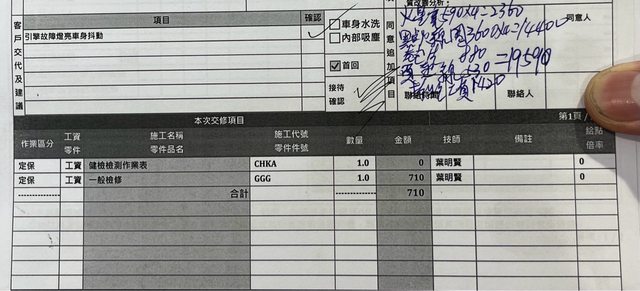 項目
確認
客戶交代及建議
引擎故障燈亮車身抖動
車身水洗
內部吸塵
首回
接待確認
同意追加項目
火星塞590x4=2360
3600x4=14400
880
530=19590
1420
同意人
聯絡時間
聯絡人
本次交修項目
第1頁/
作業區分 工資零件 施工名稱零件品名 施工代號零件件號 數量 金額 技師 備註 給點倍率
定保 工資 健檢檢測作業表 CHKA 1.0 0 葉明賢 0
定保 工資 一般檢修 GGG 1.0 710 葉明賢 0
合計 710